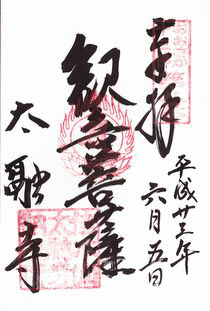 奉拝
平成廿三年
六月五日
観音菩薩
太融寺